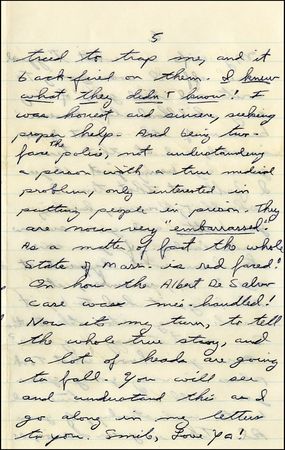 5
tried to trap me, and it
back-fired on them. I knew
what they didn't know! I
was honest and sincere, seeking
proper help. And being two-
face the police, not understanding
a person with a true medical
problem, only interested in
putting people in prison. They
are now very embarrassed!
As a matter of fact the whole
State of Mass. is red faced!
On how the Albert De Salvo
case was mis-handled!
Now its my turn, to tell
the whole true story, and
a lot of heads are going
to fall. You will see
and understand this as I
go along in my letters
to you. Smile, Love Ya!